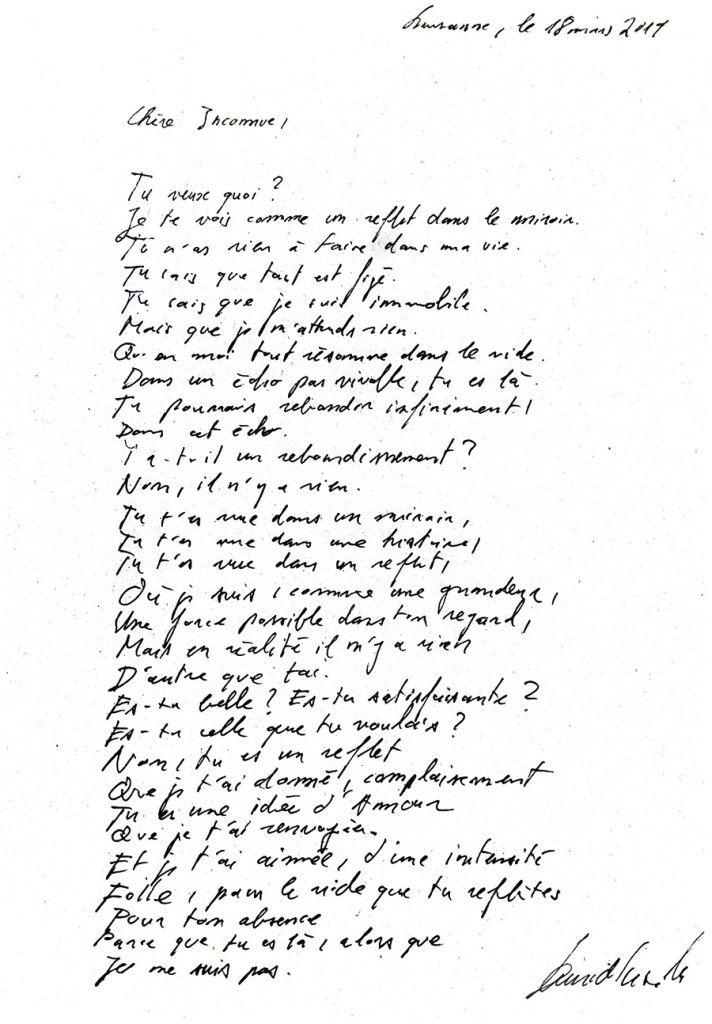 Lausanne, le 18 mars 2011
Chère Inconnue,
Tu veux quoi ?
Je te vois comme un reflet dans le miroir.
Tu n'as rien à faire dans ma vie.
Tu sais que tout est figé.
Tu sais que je suis immobile.
Mais que je n'attends rien.
Qu'en moi tout résonne dans le vide.
Dans un écho pas vivable, tu es là.
Tu pourrais rebondir infiniment !
Dans cet écho.
Y a-t-il un rebondissement ?
Non, il n'y a rien.
Tu t'es vue dans un miroir,
Tu t'es vue dans une histoire,
Tu t'es vue dans un reflet,
Où je suis, comme une grandeur,
Une force possible dans ton regard,
Mais en réalité il n'y a rien
D'autre que toi.
Es-tu belle ? Es-tu satisfaisante ?
Es-tu celle que tu voulais ?
Non, tu es un reflet
Que je t'ai donné, complaisement
Tu es une idée d'Amour
Que je t'ai renvoyée.
Et je t'ai aimée, d'une intensité
Folle, pour le vide que tu reflètes
Pour ton absence
Parce que tu es là, alors que
Je ne suis pas.